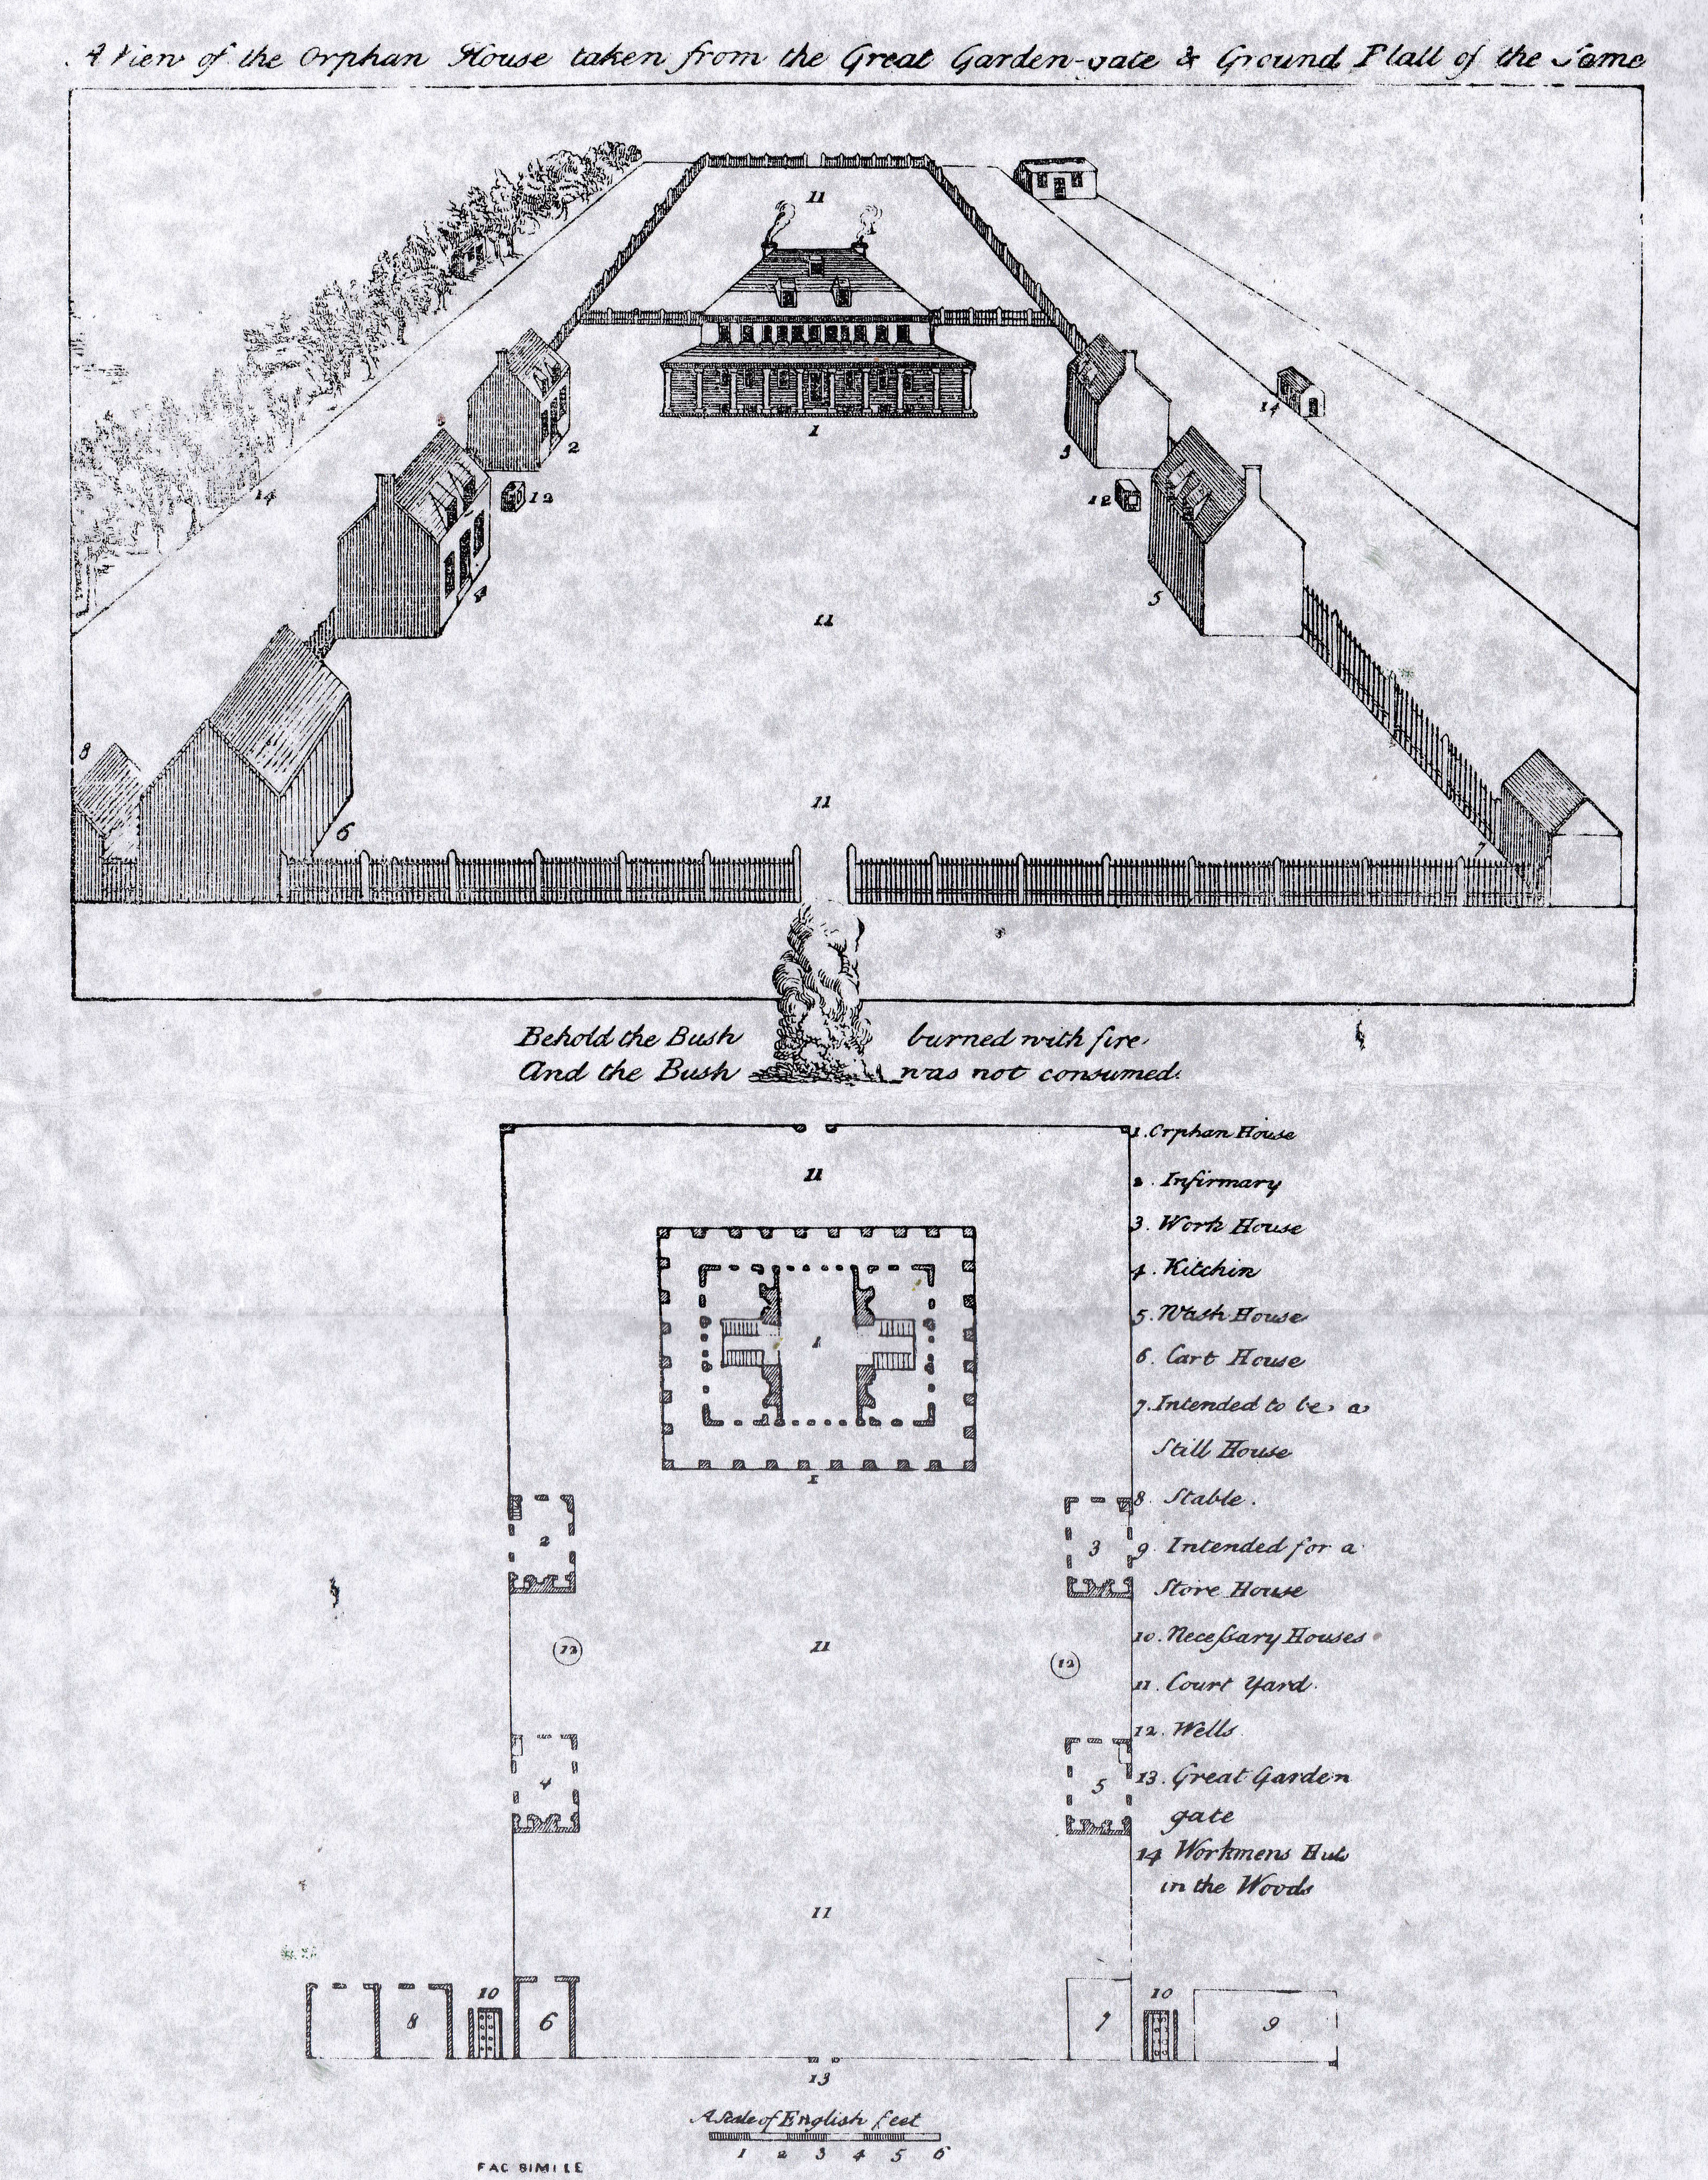 A View of the Orphan House taken from the Great Garden-gate & Ground Platt of the Same
11
1
2
3
14
14
12
12
4
5
11
8
11
6
7
Behold the Bush burned with fire
And the Bush was not consumed.
1. Orphan House
11
2. Infirmary
3. Work House
4. Kitchin
5. Wash House
1
6. Cart House
7. Intended to be a
Still House
1
8. Stable.
2
3
9. Intended for a
Store House
10. Necessary Houses
12
11
12
11. Court Yard.
12. Wells
4
5
13. Great Garden
gate
14 Workmens Huts
in the Woods
11
8
10
6
7
10
9
13
A Scale of English feet
1 2 3 4 5 6
FAC SIMILE